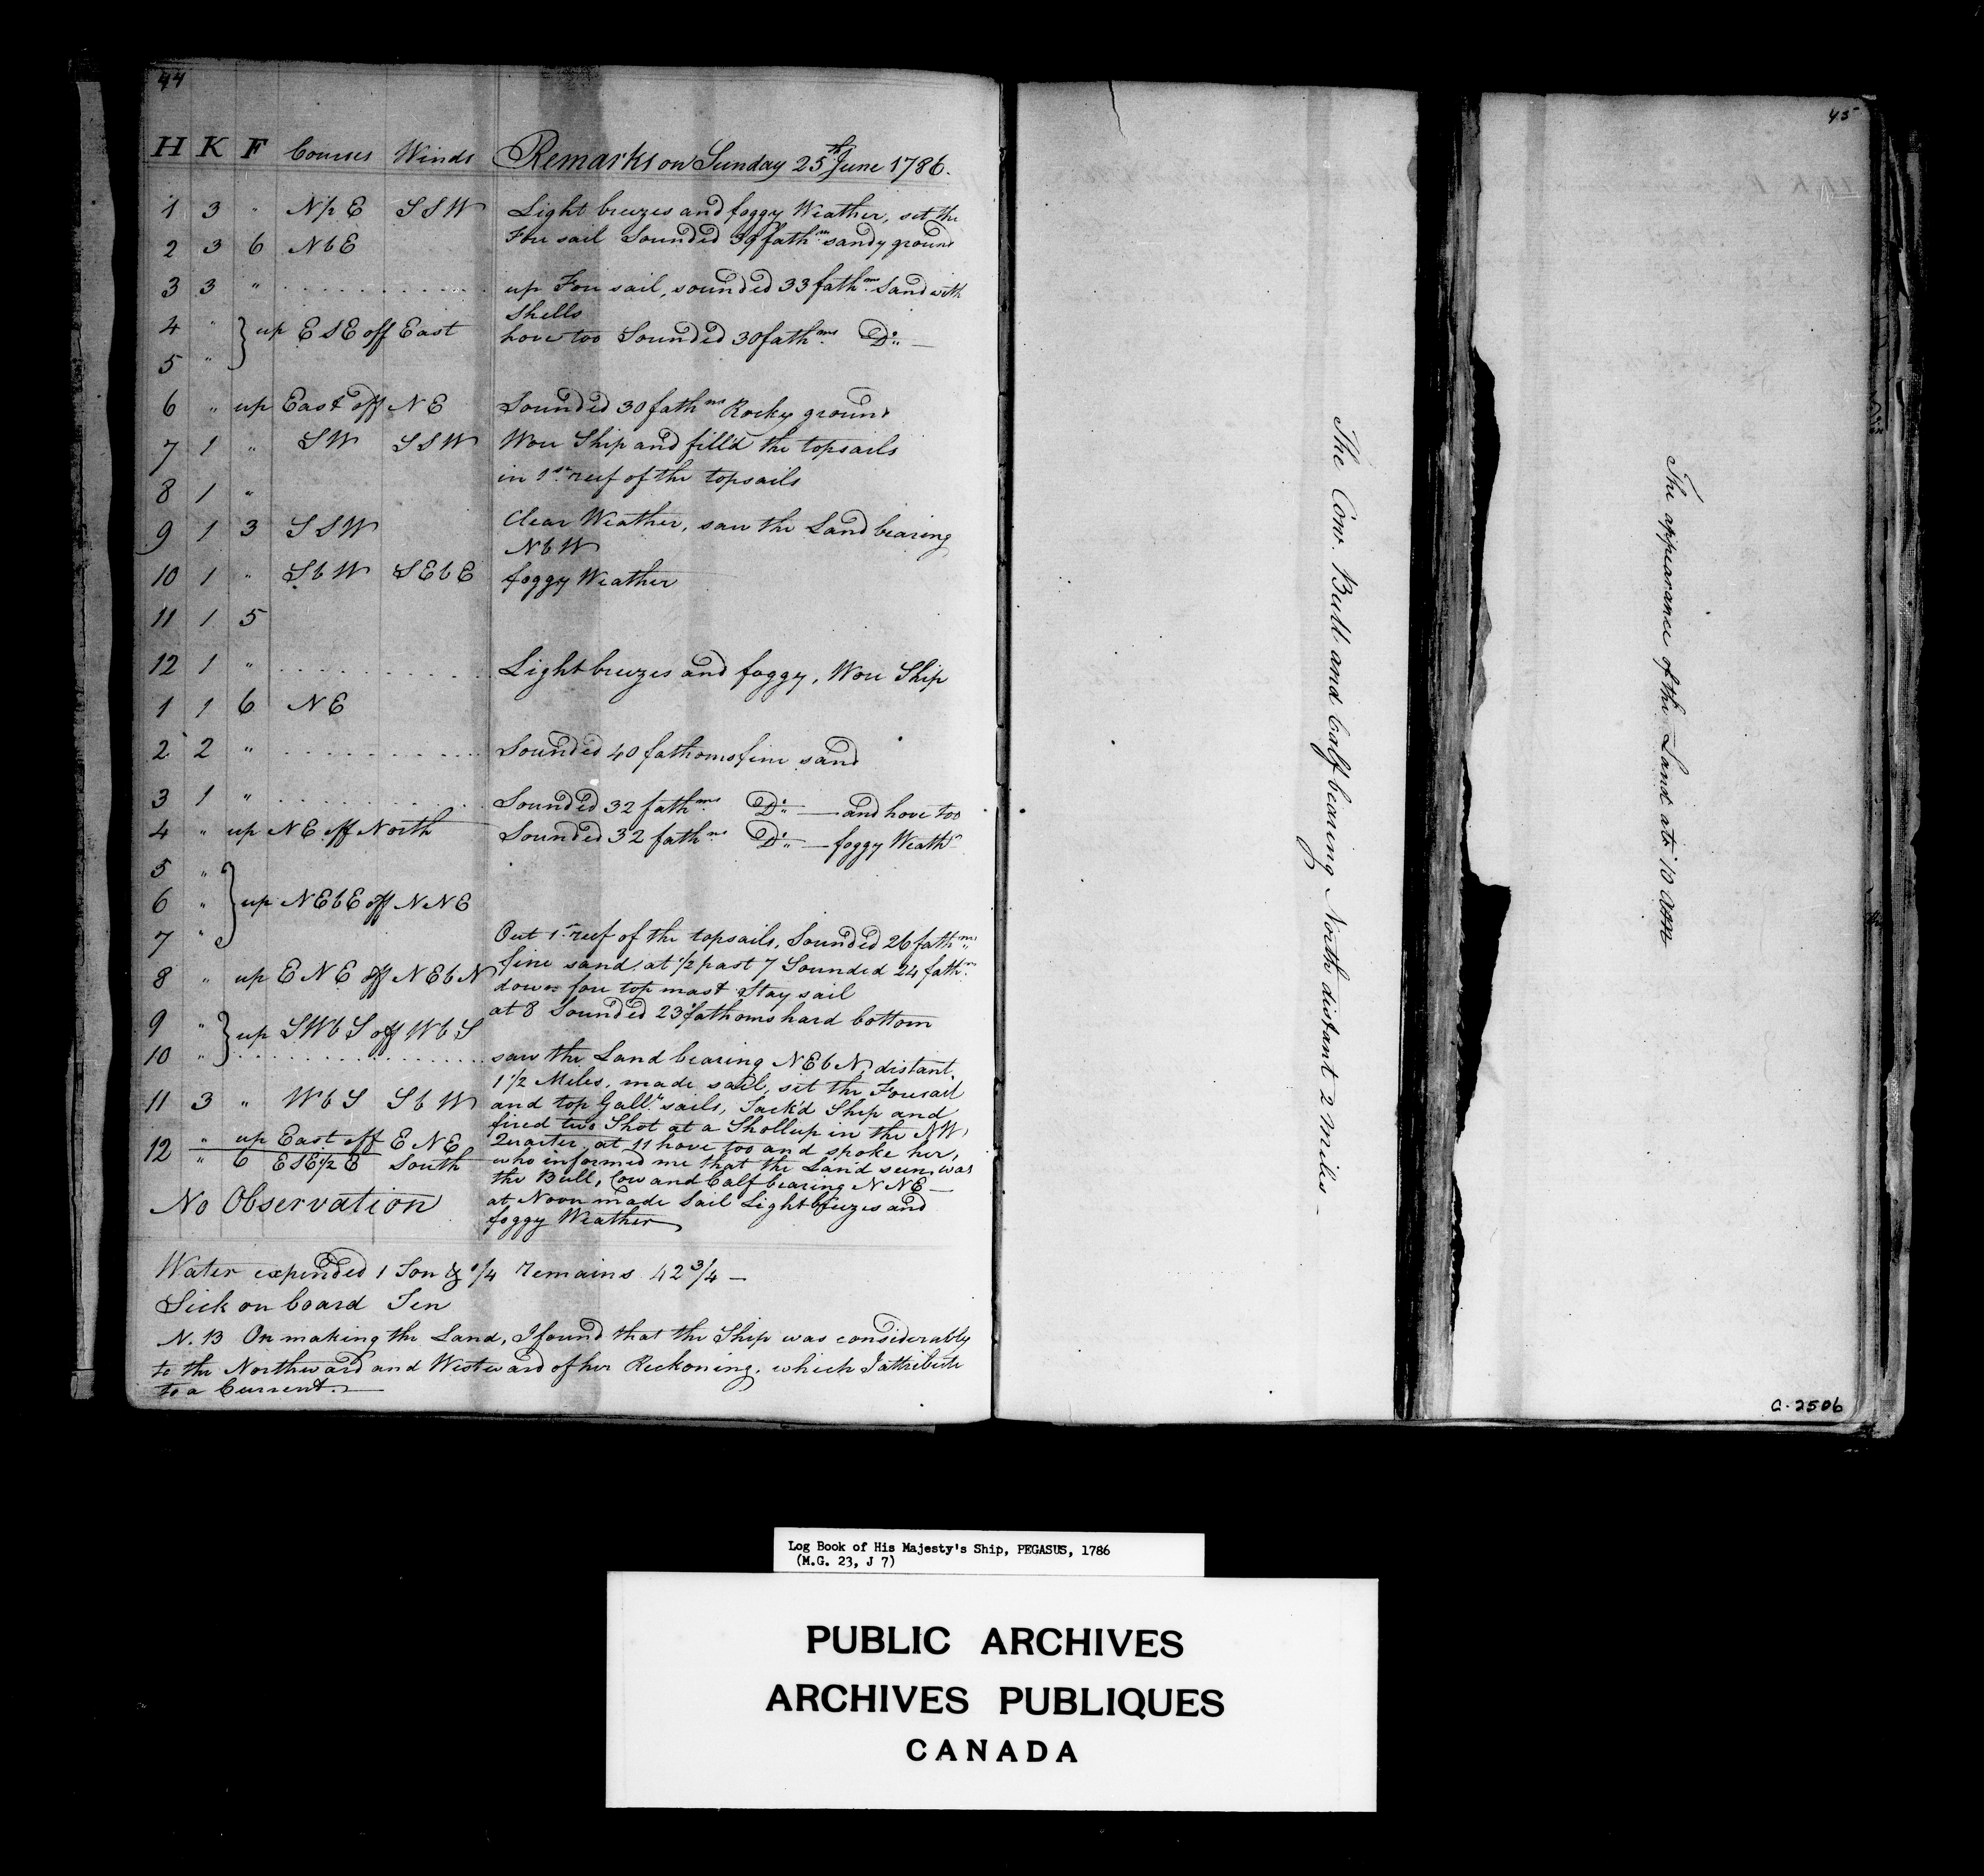 44
H K F Courses Winds Remarks on Sunday 25th June 1786.
1 3 " N½E SSW Light breezes and foggy Weather, set the
2 3 6 NbE Fore sail Sounded 39 fathms sandy ground
3 3 " up Fore sail, sounded 33 fathms. Sand with
Shells
4 " } up ESE off East hove too Sounded 30 fathms. Do. —
5 "
6 " up East off NE Sounded 30 fathms Rocky ground
7 1 " SW SSW Wore Ship and fill'd the topsails
in 1st reef of the topsails
8 1 "
9 1 3 SSW Clear Weather, saw the Land bearing
NbW
10 1 " SbW SEbE foggy Weather
11 1 5
12 1 " Light breezes and foggy, Wore Ship
1 1 6 NE
2 2 " Sounded 40 fathoms fine sand
3 1 " Sounded 32 fathms. Do. — and hove too
4 " up NE off North Sounded 32 fathms. Do. — foggy Weathr
5 "
6 " } up NEbE off NNE
7 " Out 1st reef of the topsails, Sounded 26 fathms
fine sand, at ½ past 7 Sounded 24 fathms.
8 " up ENE off NEbN down fore top mast Stay sail
at 8 Sounded 23 fathoms hard bottom
9 " } up SWbS off WbS
10 " saw the Land bearing NEbN, distant
1½ Miles, made sail, set the Foresail
11 3 " WbS SbW and top Gallt. sails, Tack'd Ship and
fired two Shot at a Shollup in the NW
12 " up East off ENE Quarter, at 11 hove too and spoke her,
" 6 ESE½E South who informed me that the Land seen was
the Bull, Cow and Calf bearing NNE —
No Observation at Noon made Sail Light breezes and
foggy Weather
Water expended 1 Ton & ¼ remains 42¾ —
Sick on board Ten
N.B On making the Land, I found that the Ship was considerably
to the Northward and Westward of her Reckoning, which I attribute
to a Current. —
The Cow. Bull and Calf bearing North distant 2 Miles -
45
The appearance of the Land at 10 AM
C-2506
Log Book of His Majesty's Ship, PEGASUS, 1786
(M.G. 23, J 7)
PUBLIC ARCHIVES
ARCHIVES PUBLIQUES
CANADA